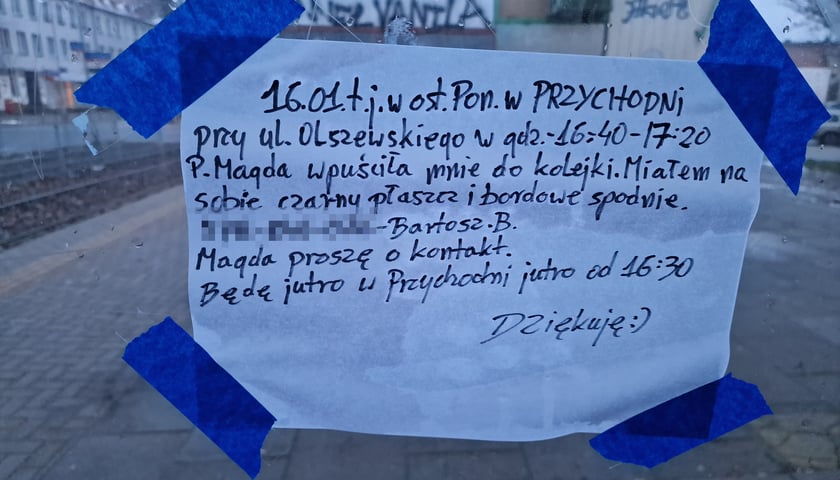 16.01.t.j.w ost.Pon.w PRZYCHODNi
przy ul. OLszewskiego w gdz.-16:40-17:20
P.Magda wpuściła mnie do kolejki.Miałem na
sobie czarny płaszcz i bordowe spodnie.
-Bartosz.B.
Magda proszę o kontakt.
Będę jutro w Przychodni jutro od 16:30
Dziękuję:)